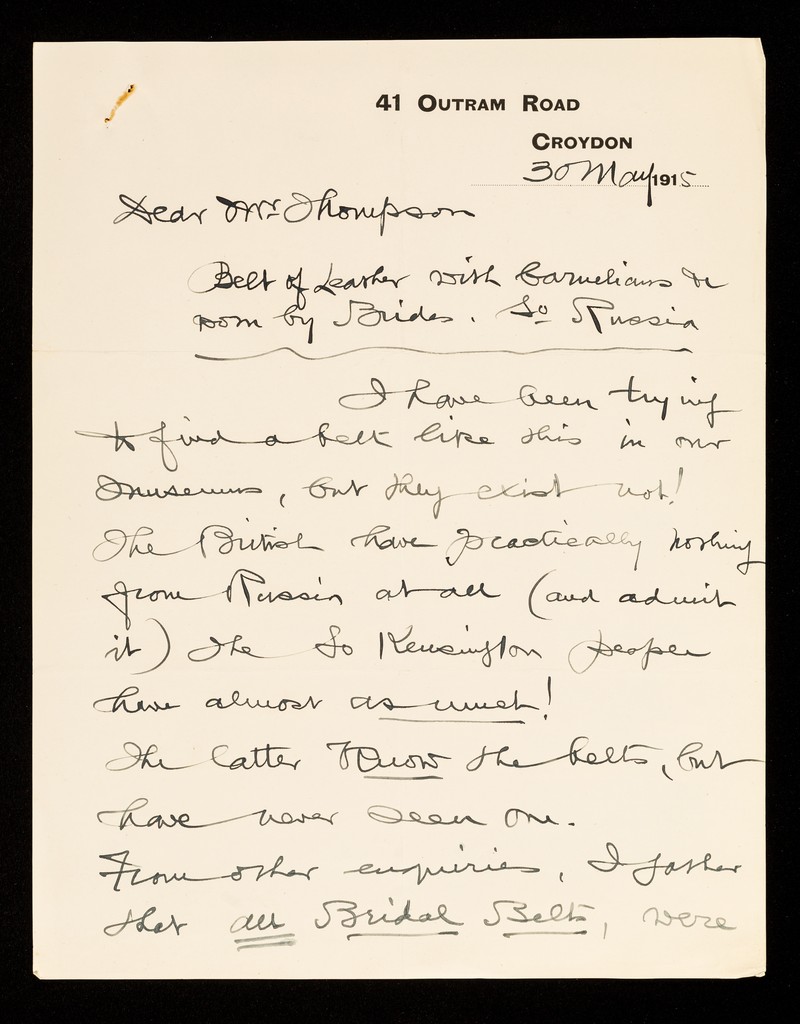 41 OUTRAM ROAD
CROYDON
30 May 1915
Dear Mr. Thompson
Belt of Leather with Carnelians &c
worn by Brides. So Russia
I have been trying
to find a belt like this in our
museums, but they exist not!
The British have practically nothing
from Russia at all (and admit
it) The So Kensington people
have almost as much!
The latter know the belts, but
have never seen one.
From other enquiries, I gather
that all Bridal Belts, were